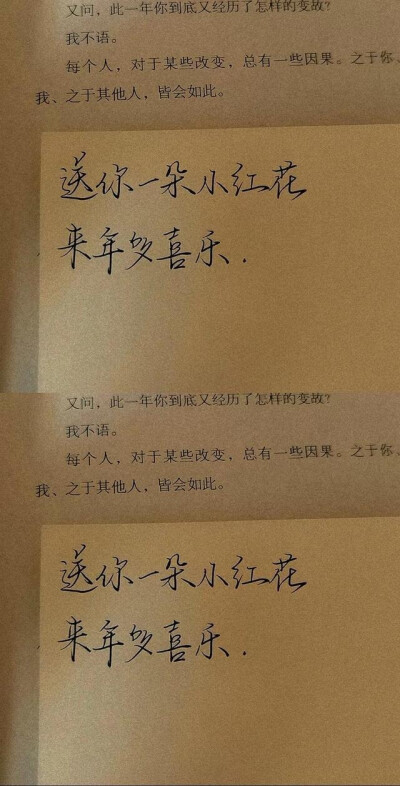 又问，此一年你到底又经历了怎样的变故？
我不语。
每个人，对于某些改变，总有一些因果。之于你、
我、之于其他人，皆会如此。
送你一朵小红花
来年多喜乐.
又问，此一年你到底又经历了怎样的变故？
我不语。
每个人，对于某些改变，总有一些因果。之于你、
我、之于其他人，皆会如此。
送你一朵小红花
来年多喜乐.